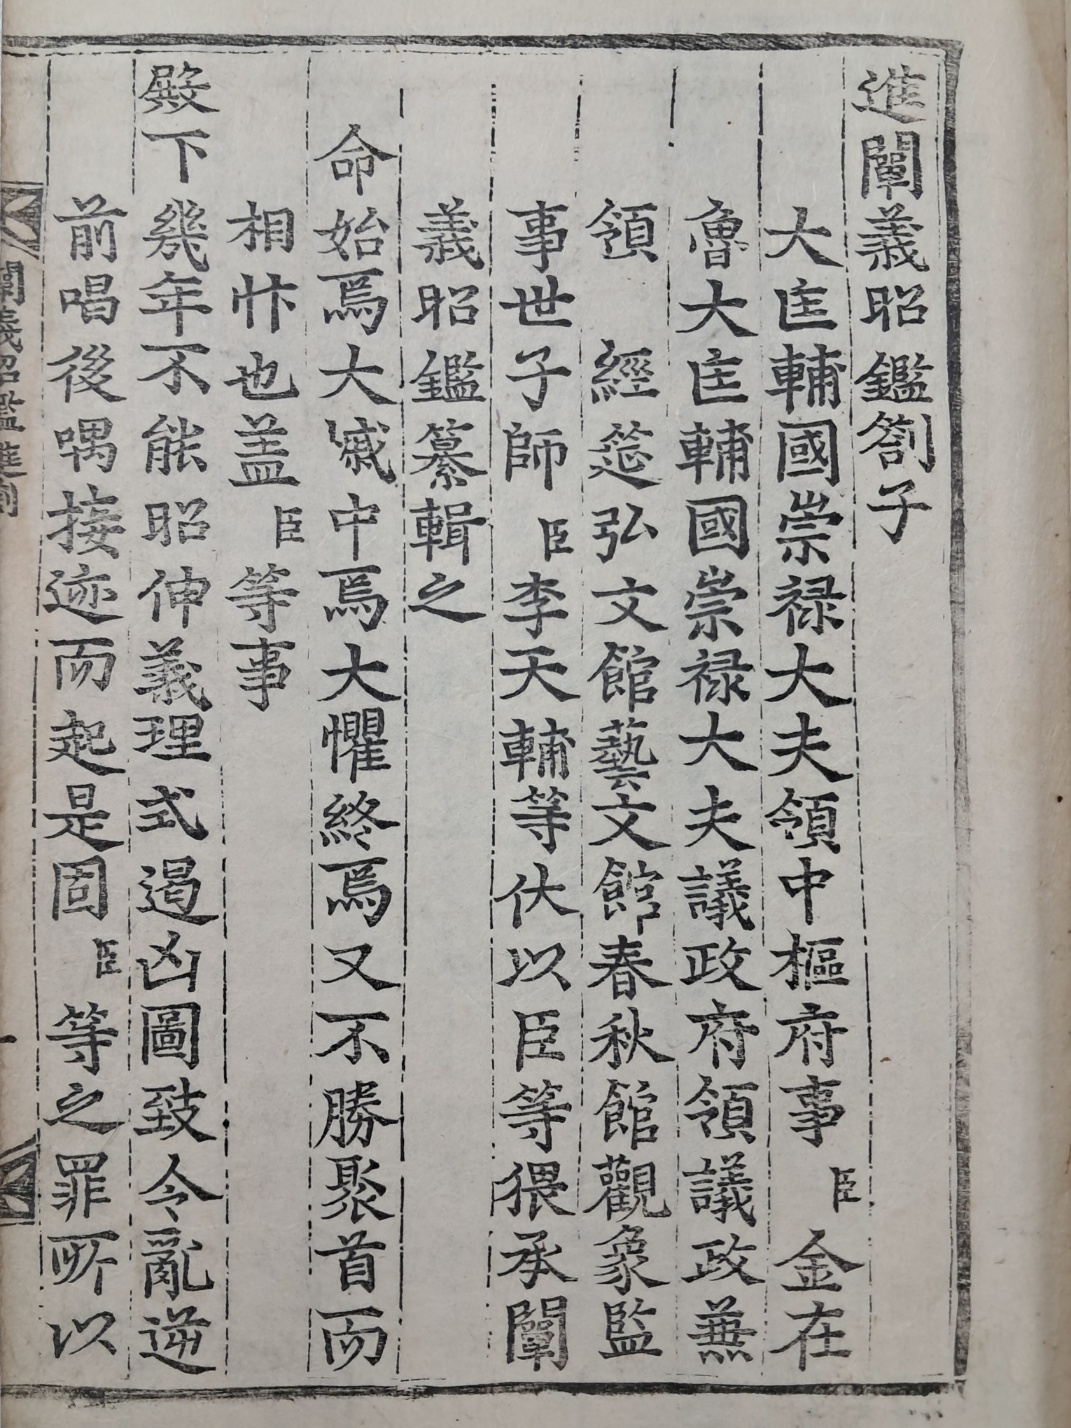 進闡義昭鑑劄子
大匡輔國崇禄大夫領中樞府事臣金在
魯大匡輔國崇禄大夫議政府領議政兼
領經筵弘文館藝文館春秋館觀象監
事世子師臣李天輔等伏以臣等猥承闡
義昭鑑纂輯之
命始焉大慽中焉大懼終焉又不勝聚首而
相忭也盖臣等事
殿下幾年不能昭伸義理式遏凶圖致令亂逆
前唱後喁接迹而起是固臣等之罪所以
闡義昭鑑進劄
一